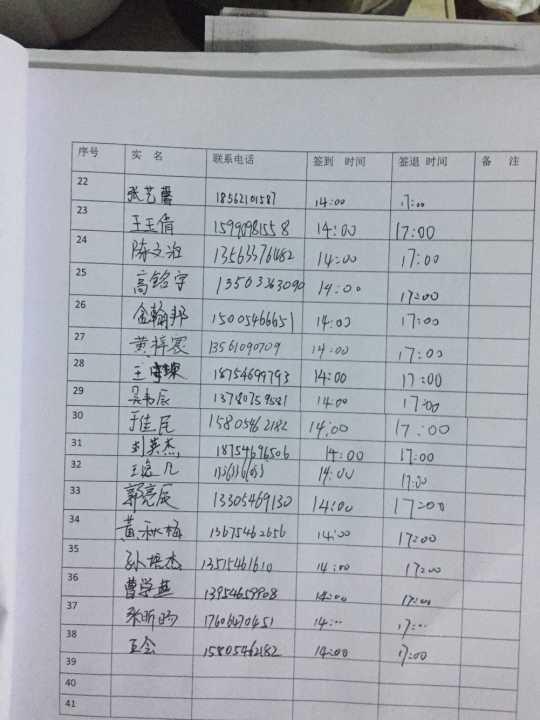 序号 实 名 联系电话 签到 时间 签退 时间 备 注
22 张艺馨 18562101587 14:00 17:00
23 王玉倩 14:00 17:00
24 陈文 13563376482 14:00 17:00
25 高铭宇 13563363090 14:00 17:00
26 金翰邦 15005466651 14:00 17:00
27 黄梓 13561090709 14:00 17:00
28 王 18754699793 14:00 17:00
29 14:00 17:00
30 于佳民 15805462182 14:00 17:00
31 刘英杰 18754696506 14:00 17:00
32 14:00 17:00
33 郭亮辰 13305469130 14:00 17:00
34 黄秋梅 13675462656 14:00 17:00
35 孙培杰 14:00 17:00
36 曹学 13954659908 14:00 17:00
37 张昕旸 17606470451 14:00 17:00
38 王会 15805462182 14:00 17:00
39
40
41